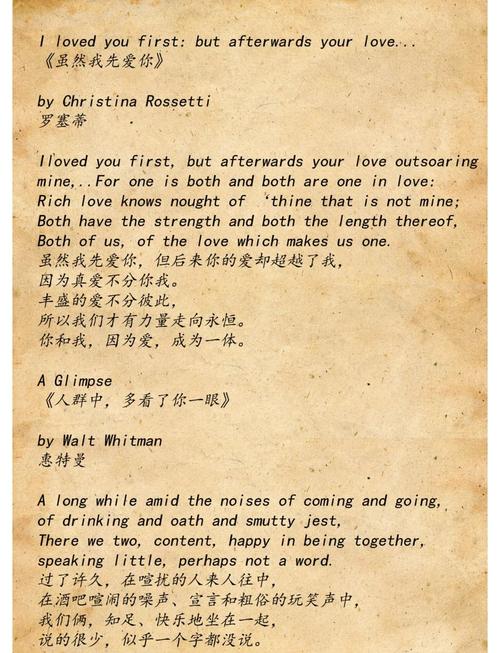 I loved you first: but afterwards your love...
《虽然我先爱你》
by Christina Rossetti
罗塞蒂
Iloved you first, but afterwards your love outsoaring
mine,..For one is both and both are one in love:
Rich love knows nought of ‘thine that is not mine;
Both have the strength and both the length thereof,
Both of us, of the love which makes us one.
虽然我先爱你，但后来你的爱却超越了我，
因为真爱不分你我。
丰盛的爱不分彼此，
所以我们才有力量走向永恒。
你和我，因为爱，成为一体。
A Glimpse
《人群中，多看了你一眼》
by Walt Whitman
惠特曼
A long while amid the noises of coming and going,
of drinking and oath and smutty jest,
There we two, content, happy in being together,
speaking little, perhaps not a word.
过了许久，在喧扰的人来人往中，
在酒吧喧闹的噪声、宣言和粗俗的玩笑声中，
我们俩，知足、快乐地坐在一起，
说的很少，似乎一个字都没说。